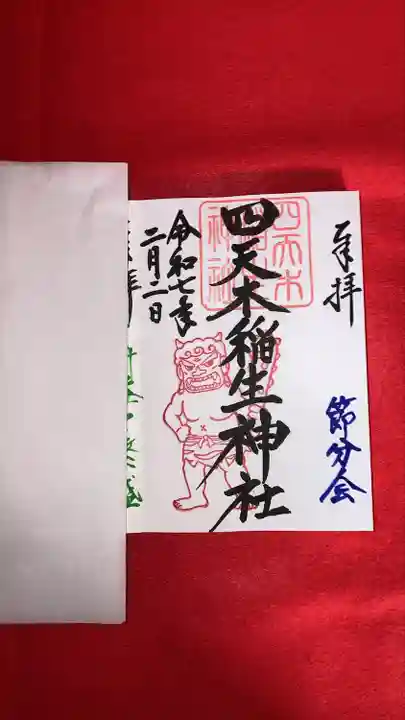 奉拝
節分会
四天木稲生神社
四天木
令和七年
二月二日
拝